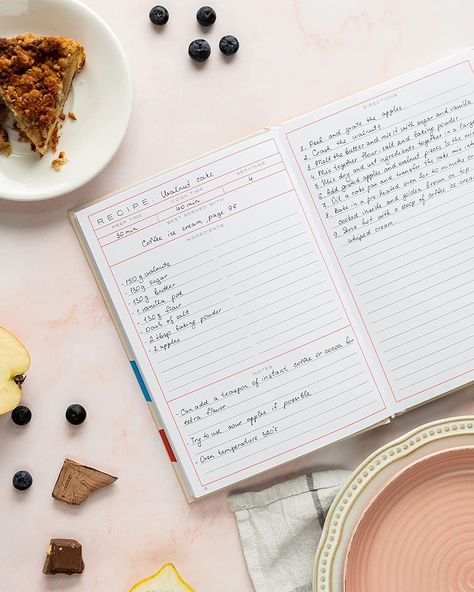 RECIPE: Walnut cake
PREP TIME COOK TIME SERVING
30 min 40 min 4
BEST SERVED WITH
Coffee ice cream, page 96
INGREDIENTS
- 150g walnuts
- 130g sugar
- 130g butter
- 1 vanilla pod
- 130g flour
- Dash of salt
- 2 tbsp baking powder
- 2 apples
NOTES
Can add a teaspoon of instant coffee or cocoa for
extra flavor
Try to use sour apples if possible
- Oven temperature 350°
DIRECTIONS
1. Peel and grate the apples.
2. Crash the walnuts
3. Melt the butter and mix it with sugar and vanilla
4. Mix together flour, salt and baking powder.
5. Mix dry and wet ingredients together in a large
6. Add grated apples and walnut pieces to the
7. Oil a cake pan and transfer the cake mix into
8. Bake in a pre-heated oven for 40 minutes
cooked inside and golden brown on top
9. Serve hot with a scoop of coffee ice cream
whipped cream.